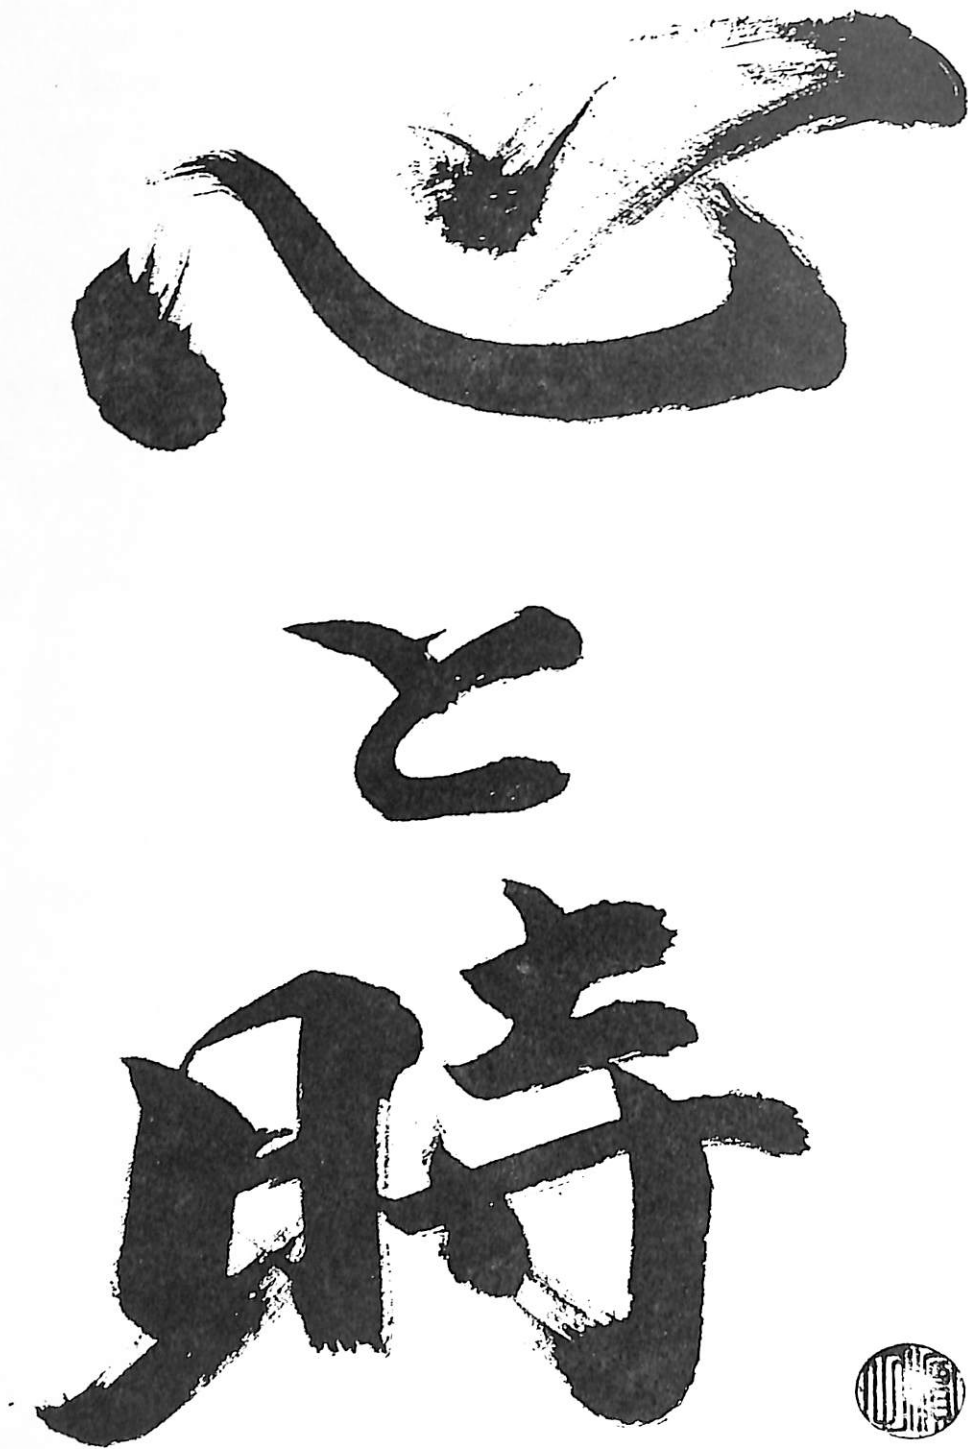 心と時